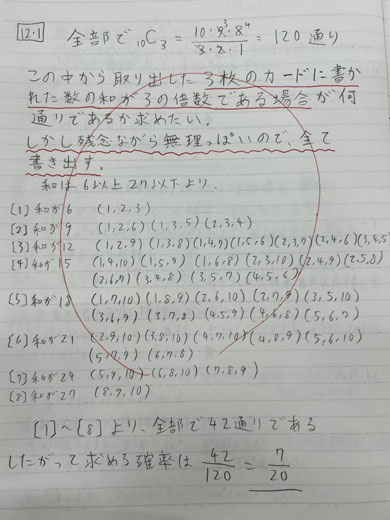 12.1 全部で ₁₀C₃ = 10・9・8 / 3・2・1 = 120通り
この中から取り出した3枚のカードに書か
れた数の和が3の倍数である場合が何
通りであるか求めたい。
しかし残念ながら無理っぽいので、全て
書き出す。
和は6以上27以下より、
[1] 和が6 (1,2,3)
[2] 和が9 (1,2,6) (1,3,5) (2,3,4)
[3] 和が12 (1,2,9) (1,3,8) (1,4,7) (1,5,6) (2,3,7) (2,4,6) (3,4,5)
[4] 和が15 (1,4,10) (1,5,9) (1,6,8) (2,3,10) (2,4,9) (2,5,8)
(2,6,7) (3,4,8) (3,5,7) (4,5,6)
[5] 和が18 (1,7,10) (1,8,9) (2,6,10) (2,7,9) (3,5,10)
(3,6,9) (3,7,8) (4,5,9) (4,6,8) (5,6,7)
[6] 和が21 (2,9,10) (3,8,10) (4,7,10) (4,8,9) (5,6,10)
(5,7,9) (6,7,8)
[7] 和が24 (5,9,10) (6,8,10) (7,8,9)
[8] 和が27 (8,9,10)
[1]～[8]より、全部で42通りである
したがって求める確率は 42/120 = 7/20